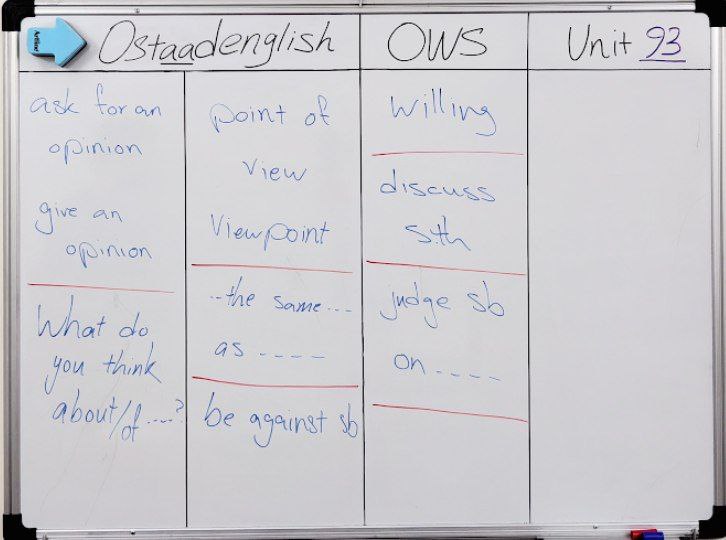 Artline
Ostaadenglish
OWS
Unit 93
ask for an
opinion
give an
opinion
What do
you think
about/of ....?
point of
view
Viewpoint
...the same....
as ----
be against sb
willing
discuss
sth
judge sb
on ----